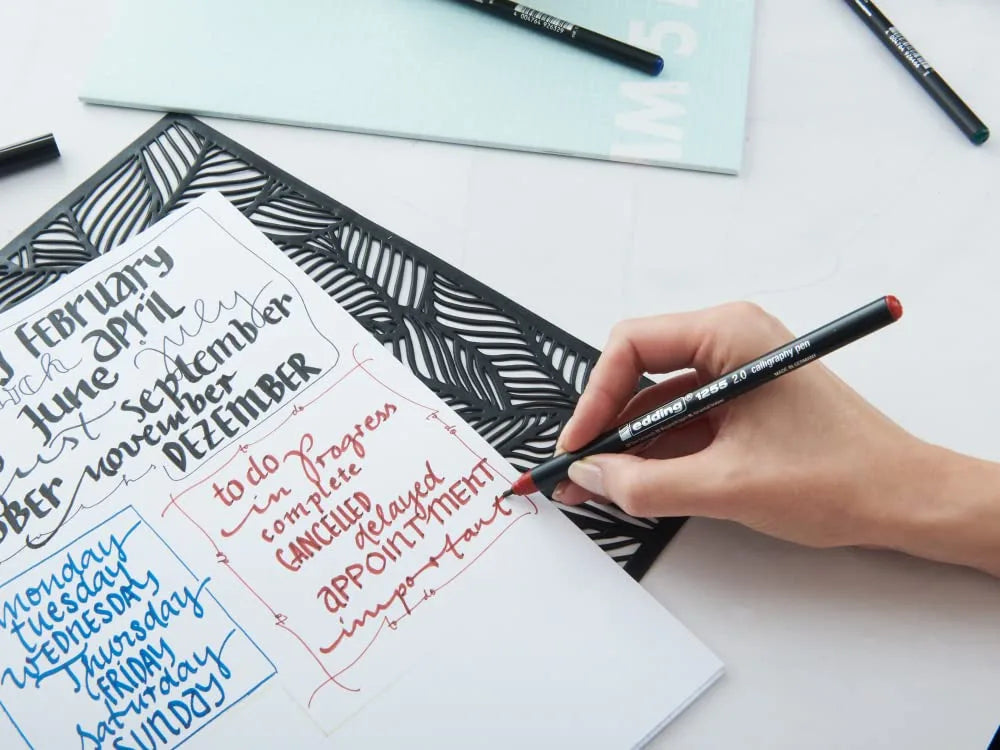 FEBRUARY
APRIL
June july
september
november
DEZEMBER
to do
in progress
complete
CANCELLED
delayed
APPOINTMENT
important
monday
tuesday
WEDNESDAY
Thursday
FRIDAY
saturday
SUNDAY
edding 1255 2.0 calligraphy pen
MADE IN GERMANY